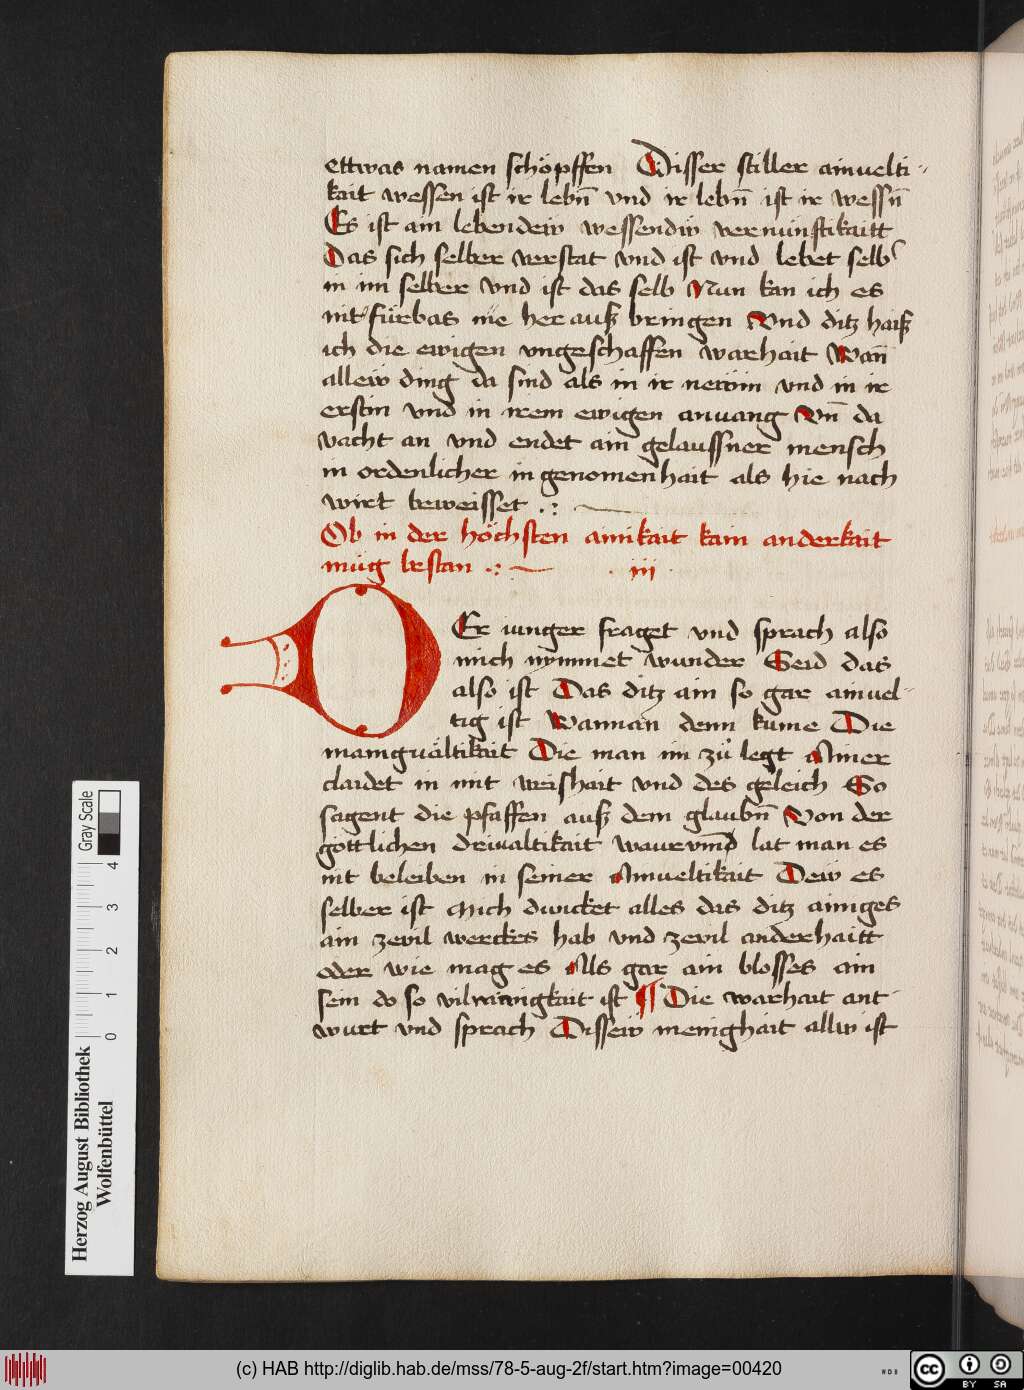 ettwas namen schöpffen Disser stiller ainuelti-
kait wessen ist ir lebn̄ vnd ir lebn̄ ist ir wessn̄
Es ist am lebendeiv wessendiv vernünftikaitt
Das sich selber verstat vnd ist vnd lebet selb
in im selber vnd ist das selb Nun kan ich es
nit fürbas nie her auß bringen Vnd ditz haiß
ich die ewigen vngeschaffen warhait Wan̄
alleiv ding da sind als in ir newin vnd in ir
erstin vnd in irem ewigen anuang Vn̄ da
vacht an vnd endet ain gelaussner mensch
in ordenlicher in genomenhait als hie nach
wirt beweisset
Ob in der höchsten ainikait kain anderkait
müg bestan iij
DEr iunger fraget vnd sprach also
mich nymmet wunder Seid das
also ist Das ditz ain so gar ainuel-
tig ist Wannan denn kume Die
manigualtikait Die man im zů legt Ainer
claidet in mit weishait vnd des geleich So
sagent die pfaffen auß dem glaubn̄ Von der
göttlichen driualtikait lat man es
nit beleiben in seiner Ainueltikait Deiv es
selber ist Mich dvncket alles das ditz ainiges
ain zevil werckes hab vnd zevil anderhaitt
oder wie mag es Als gar ain blosses ain
sein do so vil ist ¶ Die warhait ant-
wurt vnd sprach Disseiv menighait alliv ist
Gray Scale
0 1 2 3 4
Herzog August Bibliothek
Wolfenbüttel
(c) HAB http://diglib.hab.de/mss/78-5-aug-2f/start.htm?image=00420
WDB
cc BY SA